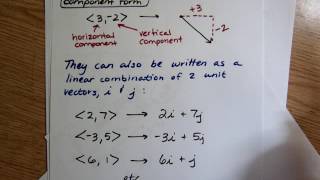 Component Form
<3,-2> → +3
-2
horizontal component
vertical component
They can also be written as a
linear combination of 2 unit
vectors, i & j :
<2,7> → 2i + 7j
<-3,5> → -3i + 5j
<6,1> → 6i + j
etc